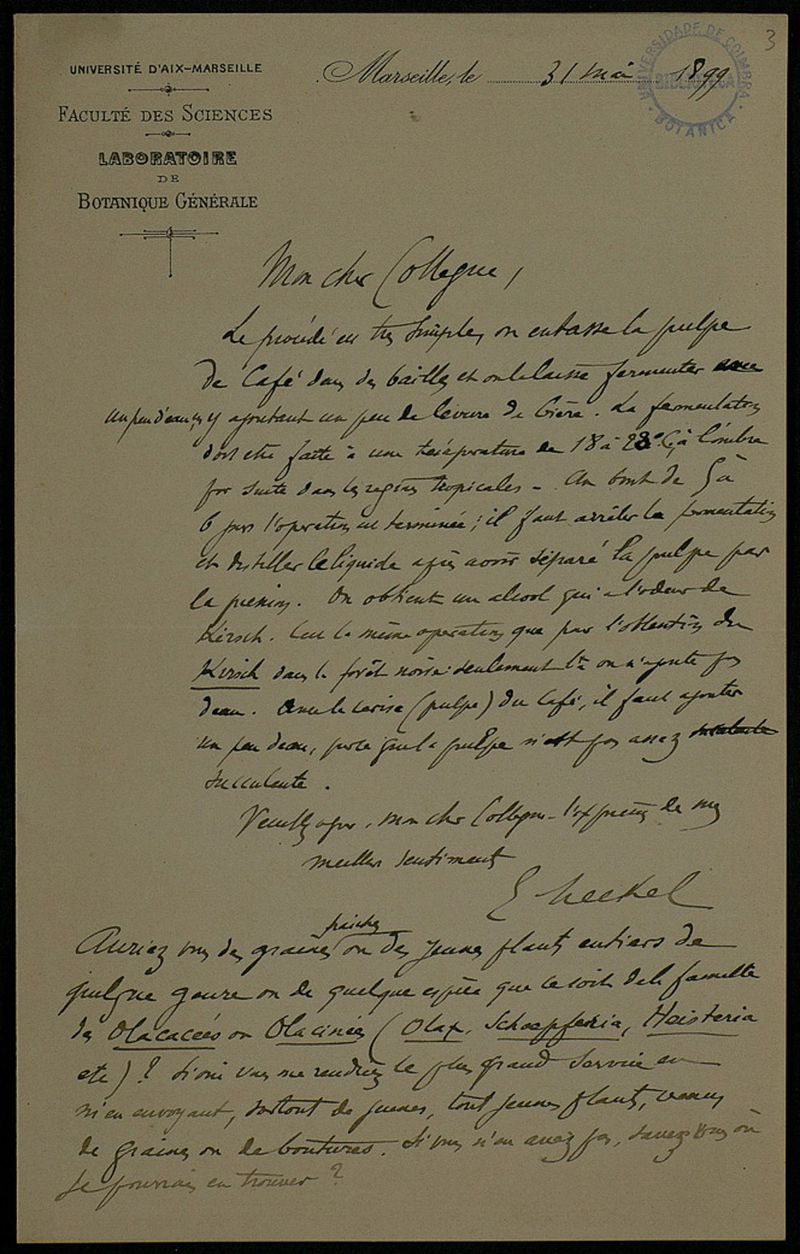 3
UNIVERSITÉ D'AIX-MARSEILLE
FACULTÉ DES SCIENCES
LABORATOIRE
DE
BOTANIQUE GÉNÉRALE
Marseille, le 31 mai 1899
UNIVERSIDADE DE COIMBRA
BIBLIOTECA
BOTANICA
Mon cher Collegue,
Le procédé est très simple, on entasse la pulpe
de Café dans des bailles et on le laisse fermenter avec
un peu d'eau en y ajoutant un peu de levure de bière. La fermentation
doit etre faite à une température de 18 à 28° C, à l'ombre
par suite dans les regions tropicales - Au bout de 5 à
6 jours l'operation est terminée; il faut arrêter la fermentation
et distiller le liquide après avoir séparé la pulpe par
la pression. On obtient un alcool qui a l'odeur de
Kirsch. C'est la même operation que pour l'obtention du
Kirsch dans la forêt noire: seulement là on n'ajoute pas
d'eau. Avec la cerise (pulpe) du Café, il faut ajouter
un peu d'eau, parce que la pulpe n'est pas assez
succulente.
Veuillez agréer, mon cher Collegue l'expression de mes
meilleurs sentiments
E Heckel
Auriez vous des graines fraiches ou des jeunes plants entiers de
quelque genre ou de quelque espèce que ce soit de la famille
des Olacacées ou Olacinées (Olax, Schoepferia, Heisteria
etc)? Si oui vous me rendriez le plus grand service en
m'en envoyant, surtout de jeunes, tout jeunes plants, venus
de graines ou de boutures. Si vous n'en avez pas, savez vous où
je pourrais en trouver?